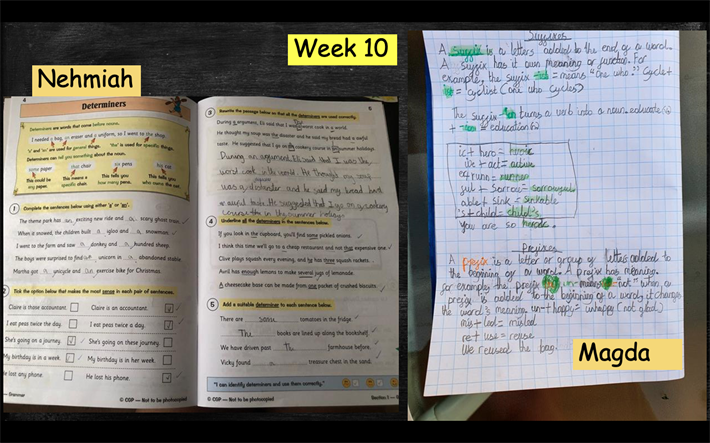 Week 10
Nehmiah
Magda
4
Determiners
Determiners are words that come before nouns.
I needed a bag, an eraser and a uniform, so I went to the shop.
'a' and 'an' are used for general things.
'the' is used for specific things.
Determiners can tell you something about the noun.
some paper
that chair
six pens
his hat
This could be any paper.
This means a specific chair.
This tells you how many pens.
This tells you who owns the hat.
1 Complete the sentences below using either 'a' or 'an'.
The theme park had an exciting new ride and a scary ghost train.
When it snowed, the children built a igloo and a snowman.
I went to the farm and saw a donkey and a hundred sheep.
The boys were surprised to find a unicorn in a abandoned stable.
Martha got a unicycle and an exercise bike for Christmas.
2 Tick the option below that makes the most sense in each pair of sentences.
Claire is those accountant.
Claire is an accountant.
I eat peas twice the day.
I eat peas twice a day.
She's going on a journey.
She's going on these journey.
My birthday is in a week.
My birthday is in her week.
He lost any phone.
He lost his phone.
© CGP — Not to be photocopied
5
3 Rewrite the passage below so that all the determiners are used correctly.
During a argument, Eli said that I was
worst cook in a world.
He thought my soup was the disaster and he said my bread had a awful
taste. He suggested that I go on
cooking course in
summer holidays.
During an argument, Eli said that I was the
worst cook in the world. He thought my soup
was a disaster and he said my bread had
a awful taste. He suggested that I go on a cooking
course in the summer holidays
4 Underline all the determiners in the sentences below.
If you look in the cupboard, you'll find some pickled onions.
I think this time we'll go to a cheap restaurant and not that expensive one.
Clive plays squash every evening, and he has three squash rackets.
Avril has enough lemons to make several jugs of lemonade.
A cheesecake base can be made from one packet of crushed biscuits.
5 Add a suitable determiner to each sentence below.
There are some tomatoes in the fridge.
The books are lined up along the bookshelf.
We have driven past the farmhouse before.
Vicky found a treasure chest in the sand.
"I can identify determiners and use them correctly."
© CGP — Not to be photocopied
Suffixes
A suffix is a letters added to the end of a word.
A suffix has it own meaning or function. For
example, the suffix -ist = means "one who". Cycle+
ist = cyclist (one who cycles)
The suffix
turns a verb into a noun. educate (v)
+
= education (n)
ic + hero = heroic
ive + act = active
er + run = runner
ful + sorrow = sorrowful
able + sink = sinkable
's + child = child's
You are so heroic.
Prefixes
A prefix is a letter or group of letters added to
the beginning of a word. A prefix has meaning.
for example the prefix
un- means "not" when a
prefix is added to the beginning of a word, it changes
the word's meaning un + happy = unhappy (not glad)
mis + lead = mislead
re + use = reuse
We reused the bag.